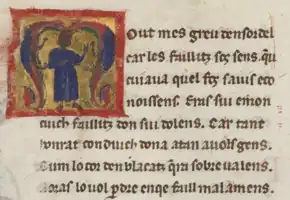 Out mes greu densordel
car les faillitz sos sens. qu
cuiaua quel fos sauis eco
noissens. Eras sui en ion
cuich faillitz don sui dolens. Car tant
honrat conduich dona atan auols gens.
Cum lo cor den blacatz qera sobre ualens.
Aoras lo uol perdre enqe faill malamens.